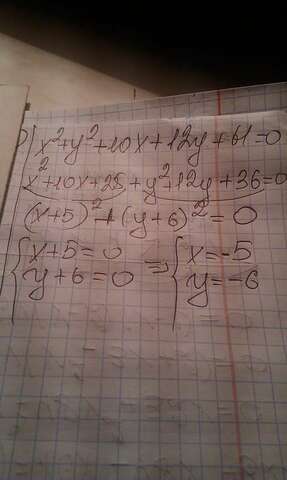 ) x²+y²+10x+12y+61=0
x²+10x+25+y²+12y+36=0
(x+5)²+(y+6)²=0
{x+5=0 ⇒ {x=-5
{y+6=0 {y=-6